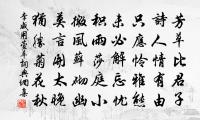 芳草比君子
詩人情有由
只應怜雅態
未必解忘憂
積雨莎庭小
微風蘚砌幽
莫言開太晚
猶勝菊花秋
李咸用萱草詞典網集